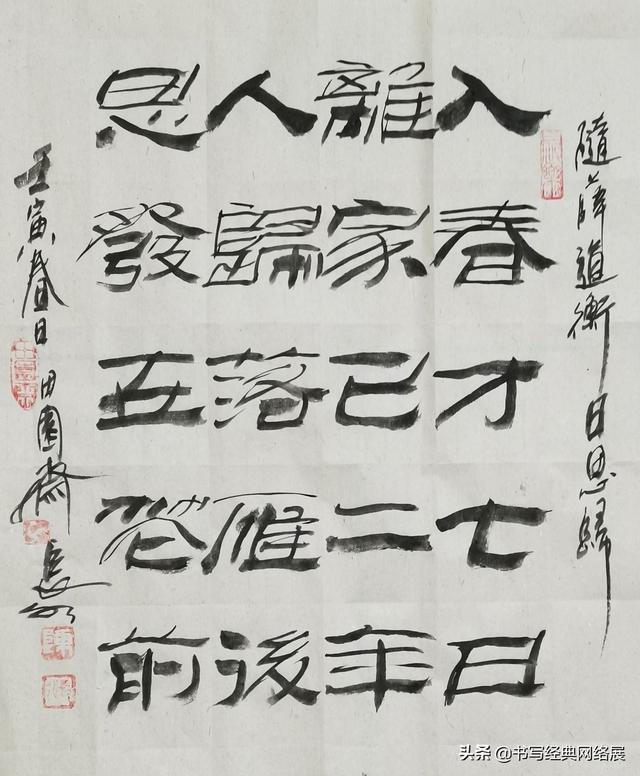 隨薛道衡日思歸
入春才七日
離家已二年
人歸落雁後
思發在花前
壬寅春日田園齋
头条 @书写经典网络展